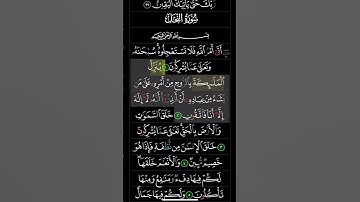 رَبَّكَ حَتَّىٰ يَأْتِيَكَ ٱلْيَقِينُ ٩٩
سُورَةُ النَّحْلِ
بِسْمِ ٱللَّهِ ٱلرَّحْمَٰنِ ٱلرَّحِيمِ
أَتَىٰٓ أَمْرُ ٱللَّهِ فَلَا تَسْتَعْجِلُوهُ سُبْحَٰنَهُۥ
وَتَعَٰلَىٰ عَمَّا يُشْرِكُونَ ١ يُنَزِّلُ
ٱلْمَلَٰٓئِكَةَ بِٱلرُّوحِ مِنْ أَمْرِهِۦ عَلَىٰ مَن
يَشَآءُ مِنْ عِبَادِهِۦٓ أَنْ أَنذِرُوٓا۟ أَنَّهُۥ لَآ إِلَٰهَ
إِلَّآ أَنَا۠ فَٱتَّقُونِ ٢ خَلَقَ ٱلسَّمَٰوَٰتِ
وَٱلْأَرْضَ بِٱلْحَقِّ تَعَٰلَىٰ عَمَّا يُشْرِكُونَ ٣
خَلَقَ ٱلْإِنسَٰنَ مِن نُّطْفَةٍ فَإِذَا هُوَ
خَصِيمٌ مُّبِينٌ ٤ وَٱلْأَنْعَٰمَ خَلَقَهَا
لَكُمْ فِيهَا دِفْءٌ وَمَنَٰفِعُ وَمِنْهَا
تَأْكُلُونَ ٥ وَلَكُمْ فِيهَا جَمَالٌ